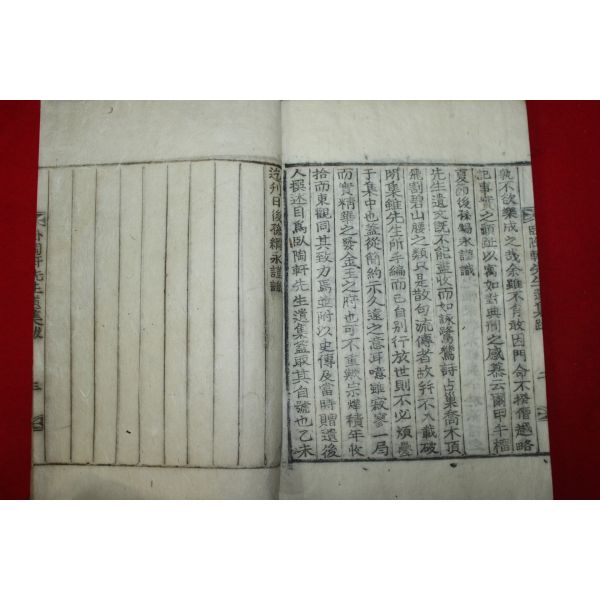 臥陶軒先生遺集跋
孰不欲樂成之哉余雖不肖敢因門命不揆僭越略
記事實之顚趾以寓如對典刑之感慕云爾甲午榴
夏節後孫錫永謹識
先生遺文旣不能盡收而如詠鷺鷥詩占巢喬木頂
飛割碧山腰之類只是散句流傳者故幷不入載破
閑集雖先生所手編而已自別行放世則不必煩疊
于集中也蓋從簡約示久遠之意耳噫雖寂寥一局
而實精華之發金玉之府也可不重歟宗燁積年收
拾而東觀同其致力焉並附以史傳及當時贈遺後
人撰述目爲臥陶軒先生遺集蓋取其自號也乙未
流刋日後孫綱永謹識
臥陶軒先生遺集跋
三